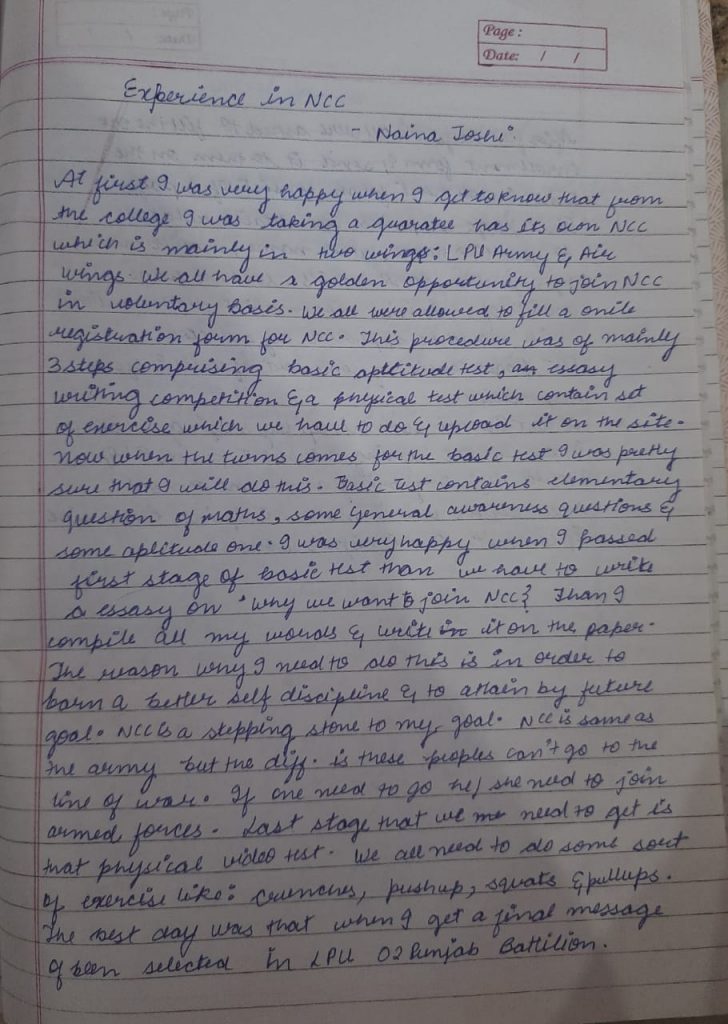 Page:
Date: / /
Experience in NCC
- Naina Joshi.
At first I was very happy when I get to know that from
the college I was taking a guaratee has its own NCC
which is mainly in two wings: LPU Army & Air
wings. We all have a golden opportunity to join NCC
in voluntary basis. We all were allowed to fill a onile
registration form for NCC. This procedure was of mainly
3 steps comprising basic aptitude test, an essasy
writing competition & a physical test which contain set
of exercise which we have to do & upload it on the site.
Now when the turns comes for the basic test I was pretty
sure that I will do this. Basic Test contains elementary
question of maths, some general awareness questions &
some aptitude one. I was very happy when I passed
first stage of basic test than we have to write
a essasy on "why we want to join NCC? Than I
compile all my words & write in it on the paper.
The reason why I need to do this is in order to
born a better self discipline & to attain by future
goal. NCC is a stepping stone to my goal. NCC is same as
the army but the diff. is these peoples can't go to the
line of war. If one need to go he/she need to join
armed forces. Last stage that we need to get is
that physical video test. We all need to do some sort
of exercise like: crunches, pushup, squats & pullups.
The best day was that when I get a final message
of been selected in LPU 02 Punjab Battilion.